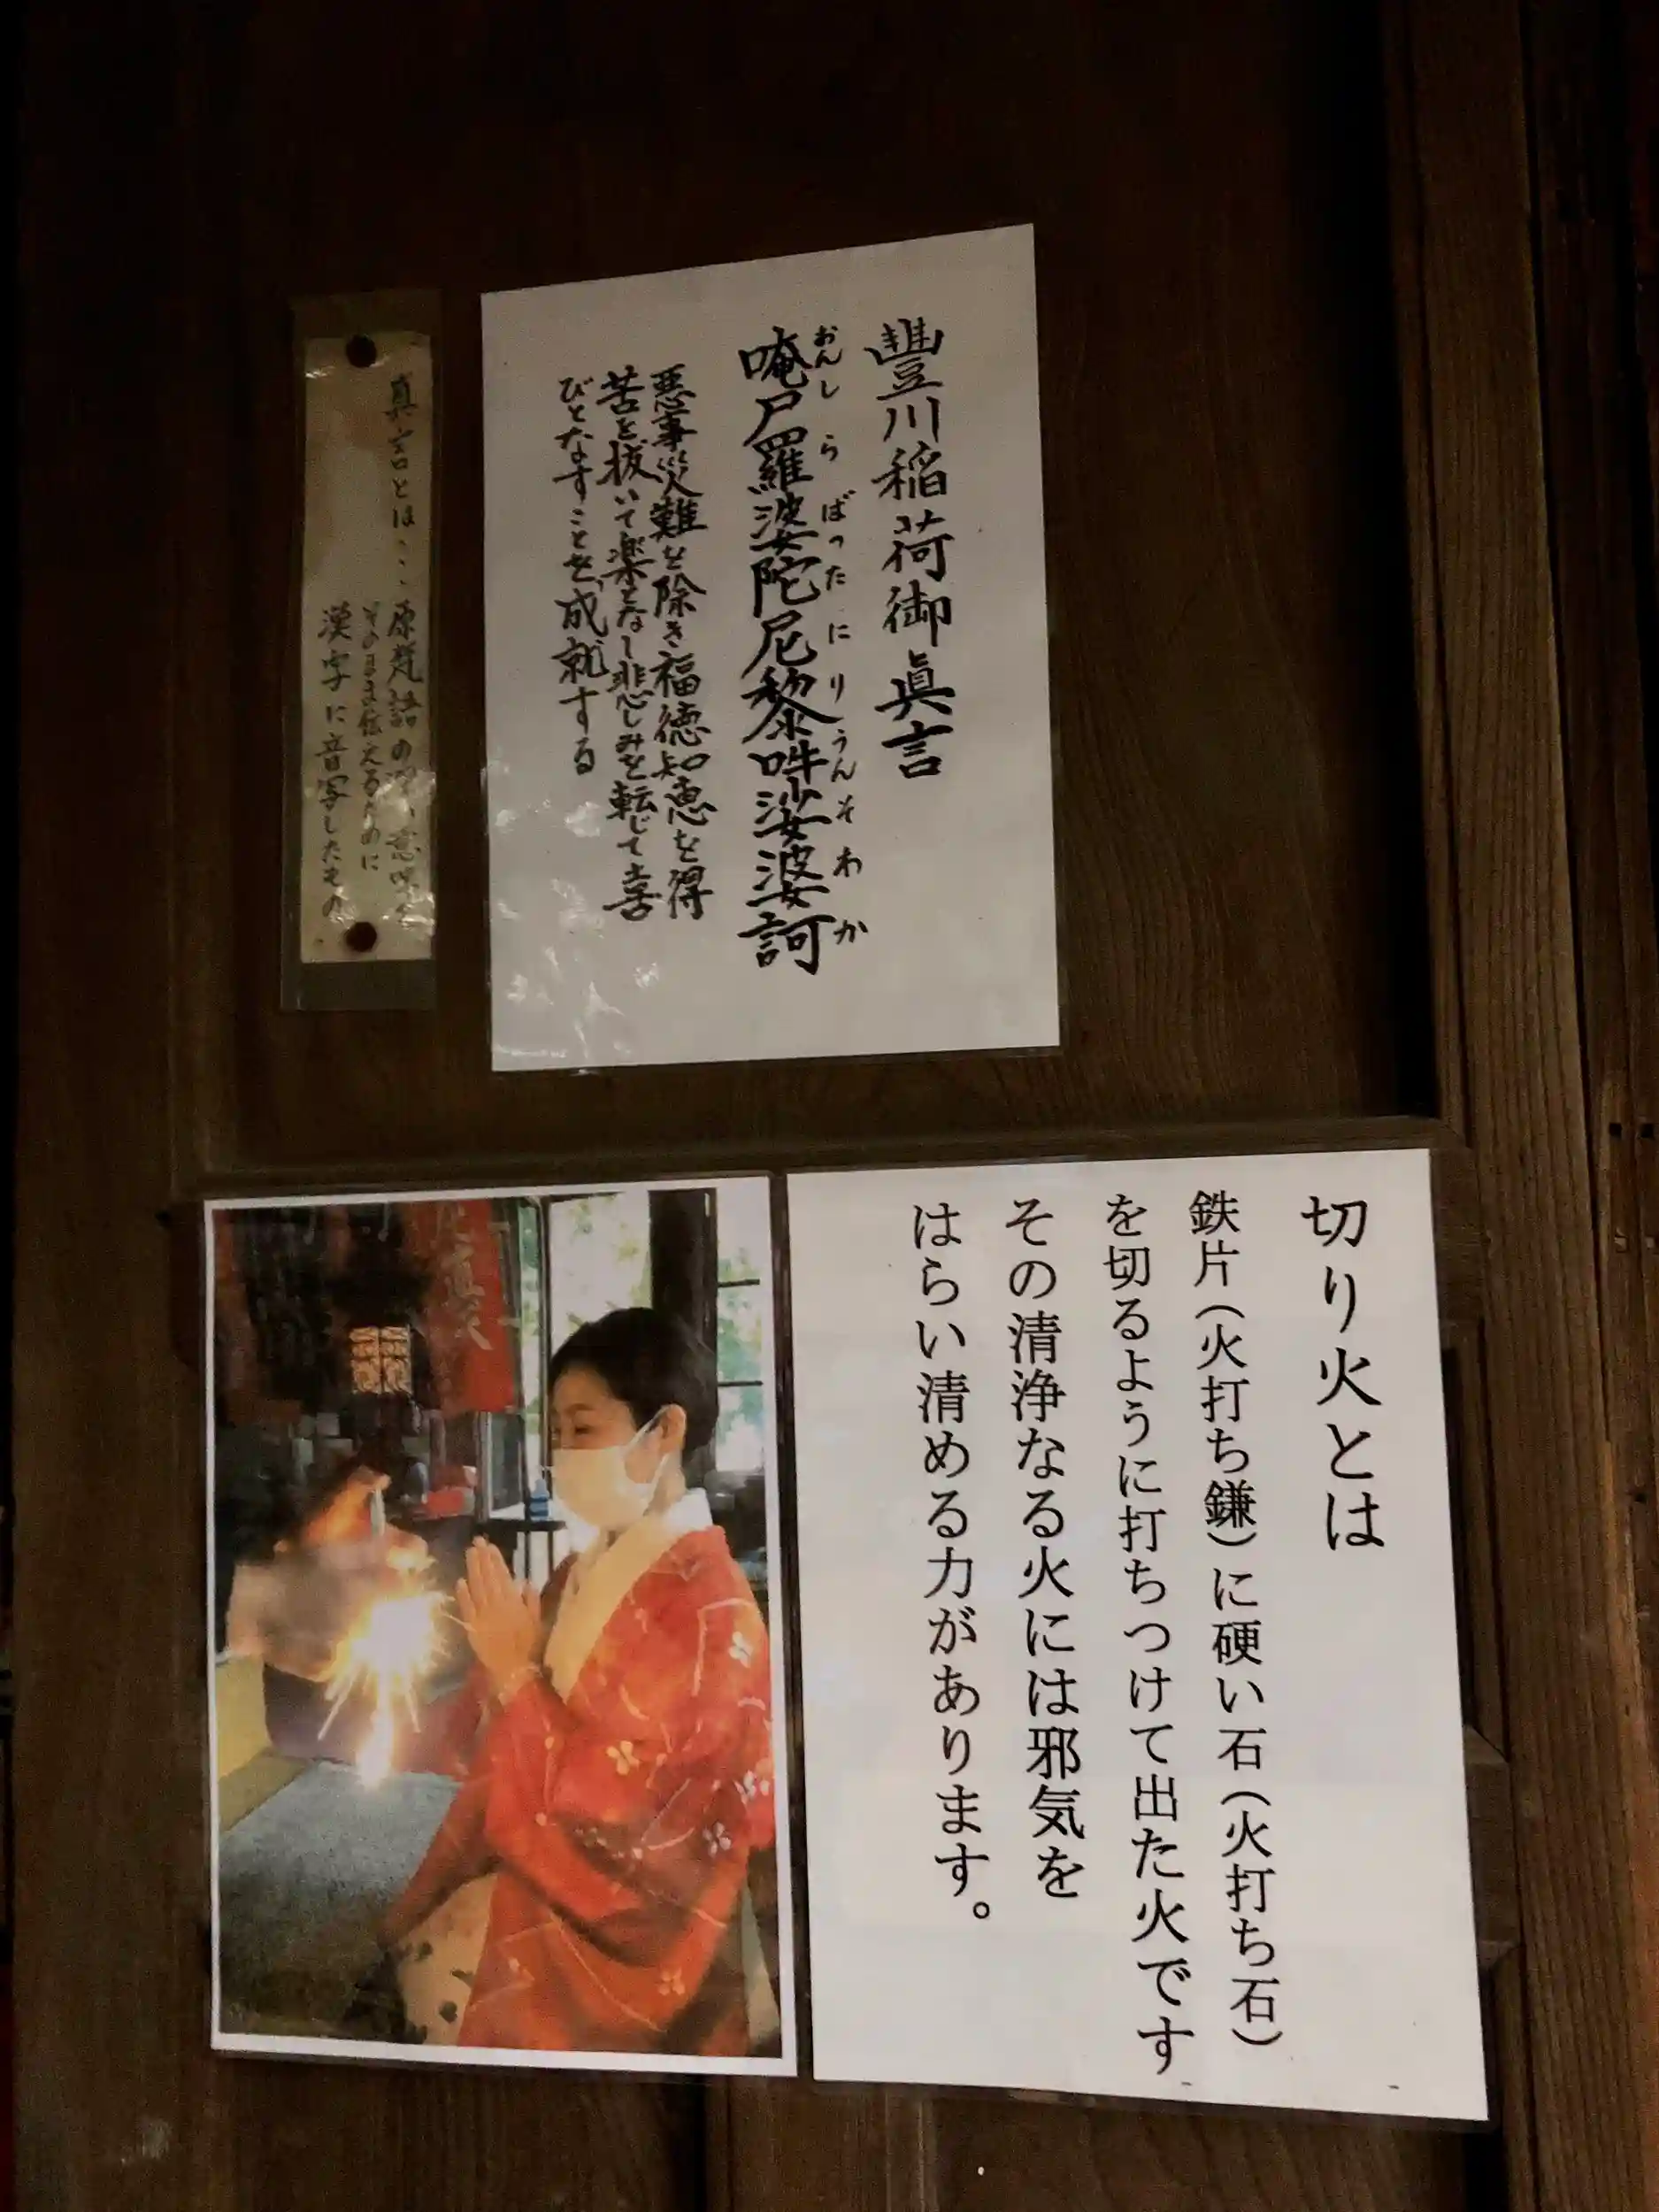 豐川稲荷御眞言
おんしらばったにりうんそわか
唵尸羅婆陀尼黎吽娑婆訶
悪事災難を除き福徳知恵を得
苦を抜いて楽となし悲しみを転じて喜
びとなすことを、成就する
真言とは、、原梵語の深い意味を
そのまま伝えるために
漢字に音写したもの
切り火とは
鉄片(火打ち鎌)に硬い石(火打ち石)
を切るように打ちつけて出た火です
その清浄なる火には邪気を
はらい清める力があります。